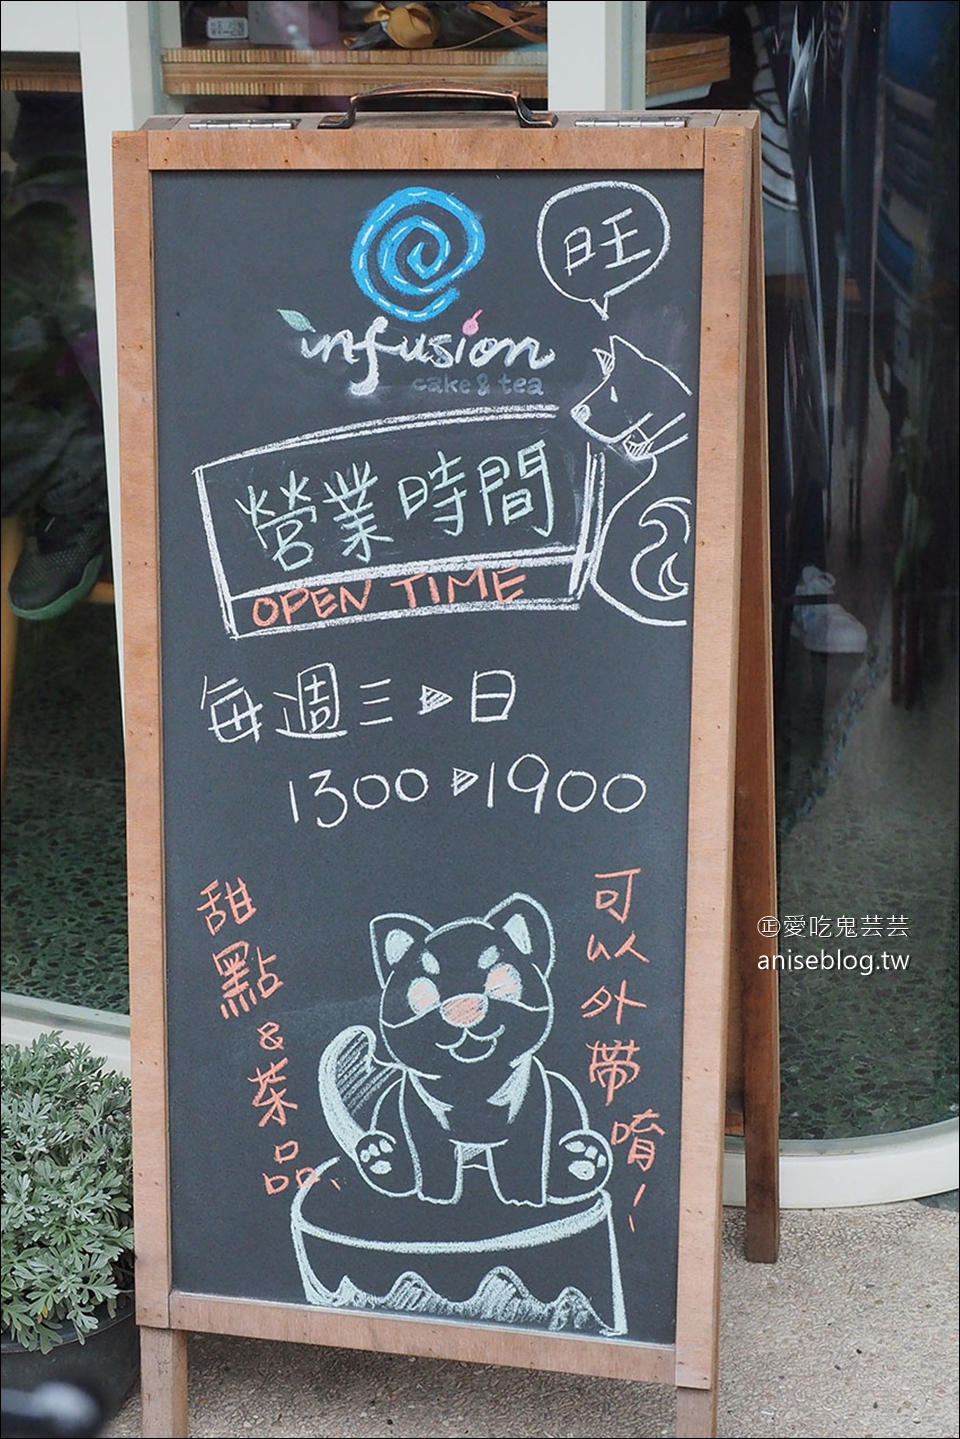 旺
infusion
cake & tea
營業時間
OPEN TIME
每週三▷日
1300▷1900
甜點&茶品、
可以外帶唷!
正愛吃鬼芸芸
aniseblog.tw